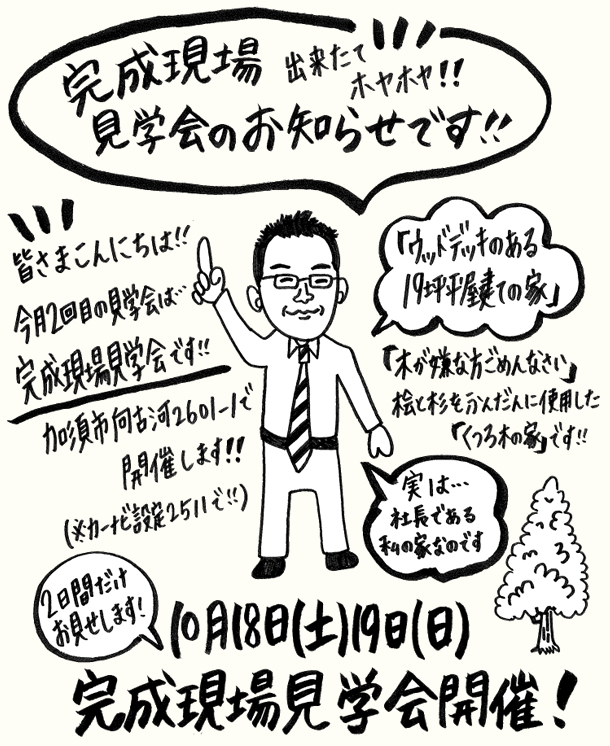 完成現場 出来たて
ホヤホヤ!!
見学会のお知らせです!!
皆さまこんにちは!!
今月2回目の見学会は…
完成現場見学会です!!
加須市向古河2601-1で
開催します!!
(※カーナビ設定2511で!!)
「ウッドデッキのある
19坪平屋建ての家」
「木が嫌な方ごめんなさい」
桧と杉をふんだんに使用した
「くつろ木の家」です!!
実は…
社長である
私の家なのです
2日間だけ
お見せします!
10月18日(土)19日(日)
完成現場見学会開催!